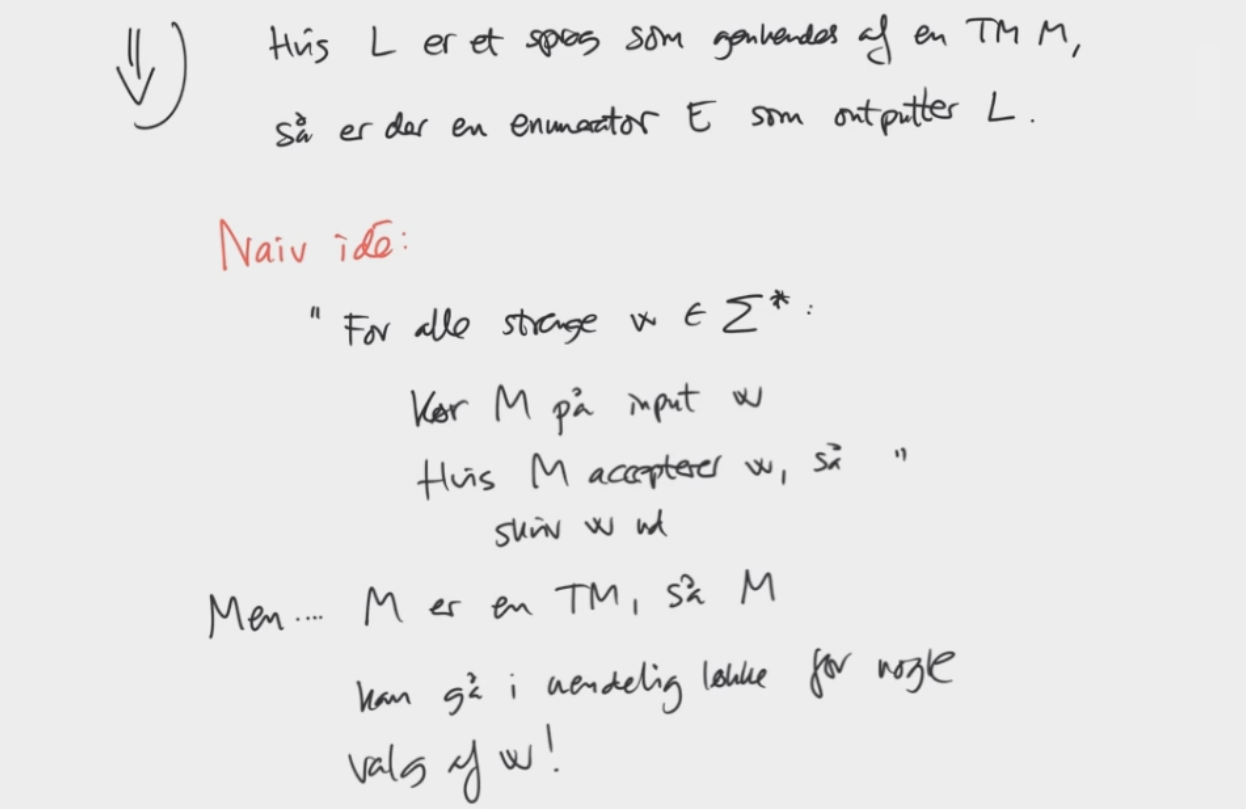 ⇓) Hvis L er et sprog som genkendes af en TM M,
så er der en enumerator E som outputter L.
Naiv idé:
" For alle strenge w ∈ Σ* :
Kør M på input w
Hvis M accepterer w, så "
skriv w ud
Men.... M er en TM, så M
kan gå i uendelig løkke for nogle
valg af w!